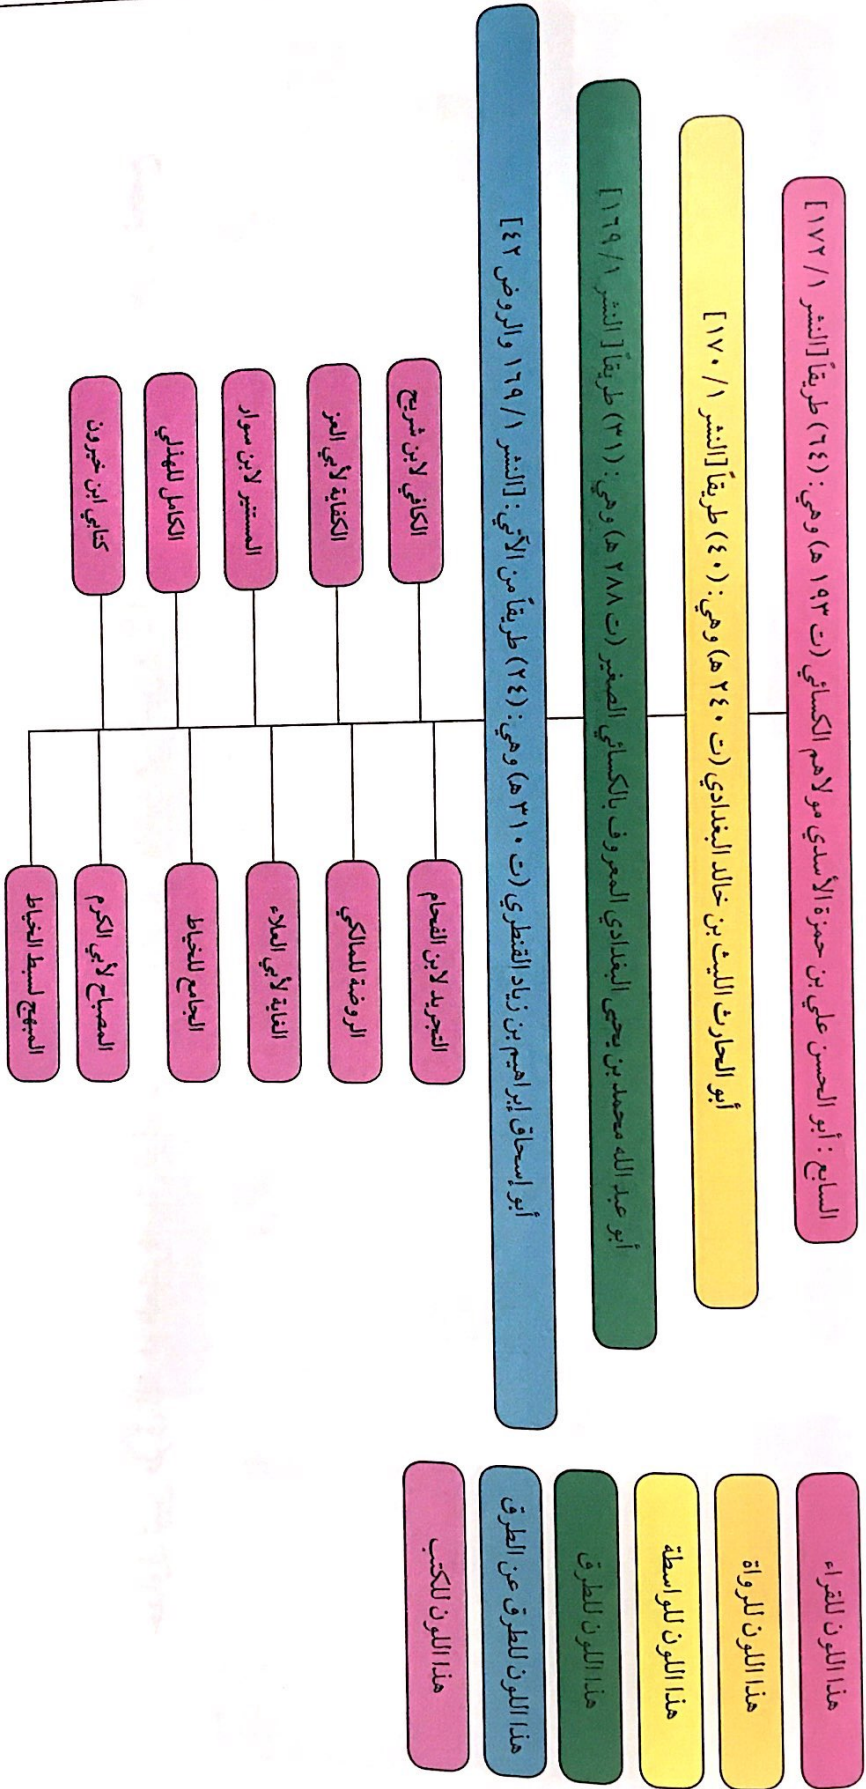 السابع : أبو الحسن علي بن حمزة الأسدي مولاهم الكسائي (ت ١٩٣ هـ) وهي : (٦٤) طريقاً [النشر ١/ ١٧٢]
أبو الحارث الليث بن خالد البغدادي (ت ٢٤٠ هـ) وهي : (٤٠) طريقاً [النشر ١/ ١٧٠]
أبو عبد الله محمد بن يحيى البغدادي المعروف بالكسائي الصغير (ت ٢٨٨ هـ) وهي : (٣١) طريقاً [النشر ١/ ١٦٩]
أبو إسحاق إبراهيم بن زياد القنطري (ت ٣١٠ هـ) وهي : (٢٤) طريقاً من الآتي : [النشر ١/ ١٦٩ والروض ٤٢]
التجريد لابن الفحام
الكافي لابن شريح
الروضة للمالكي
الكفاية لأبي العز
الغاية لأبي العلاء
المستنير لابن سوار
الجامع للخياط
الكامل للهذلي
المصباح لأبي الكرم
كتابي ابن خيرون
المبهج لسبط الخياط
هذا اللون للقراء
هذا اللون للرواة
هذا اللون للواسطة
هذا اللون للطرق
هذا اللون للطرق عن الطرق
هذا اللون للكتب